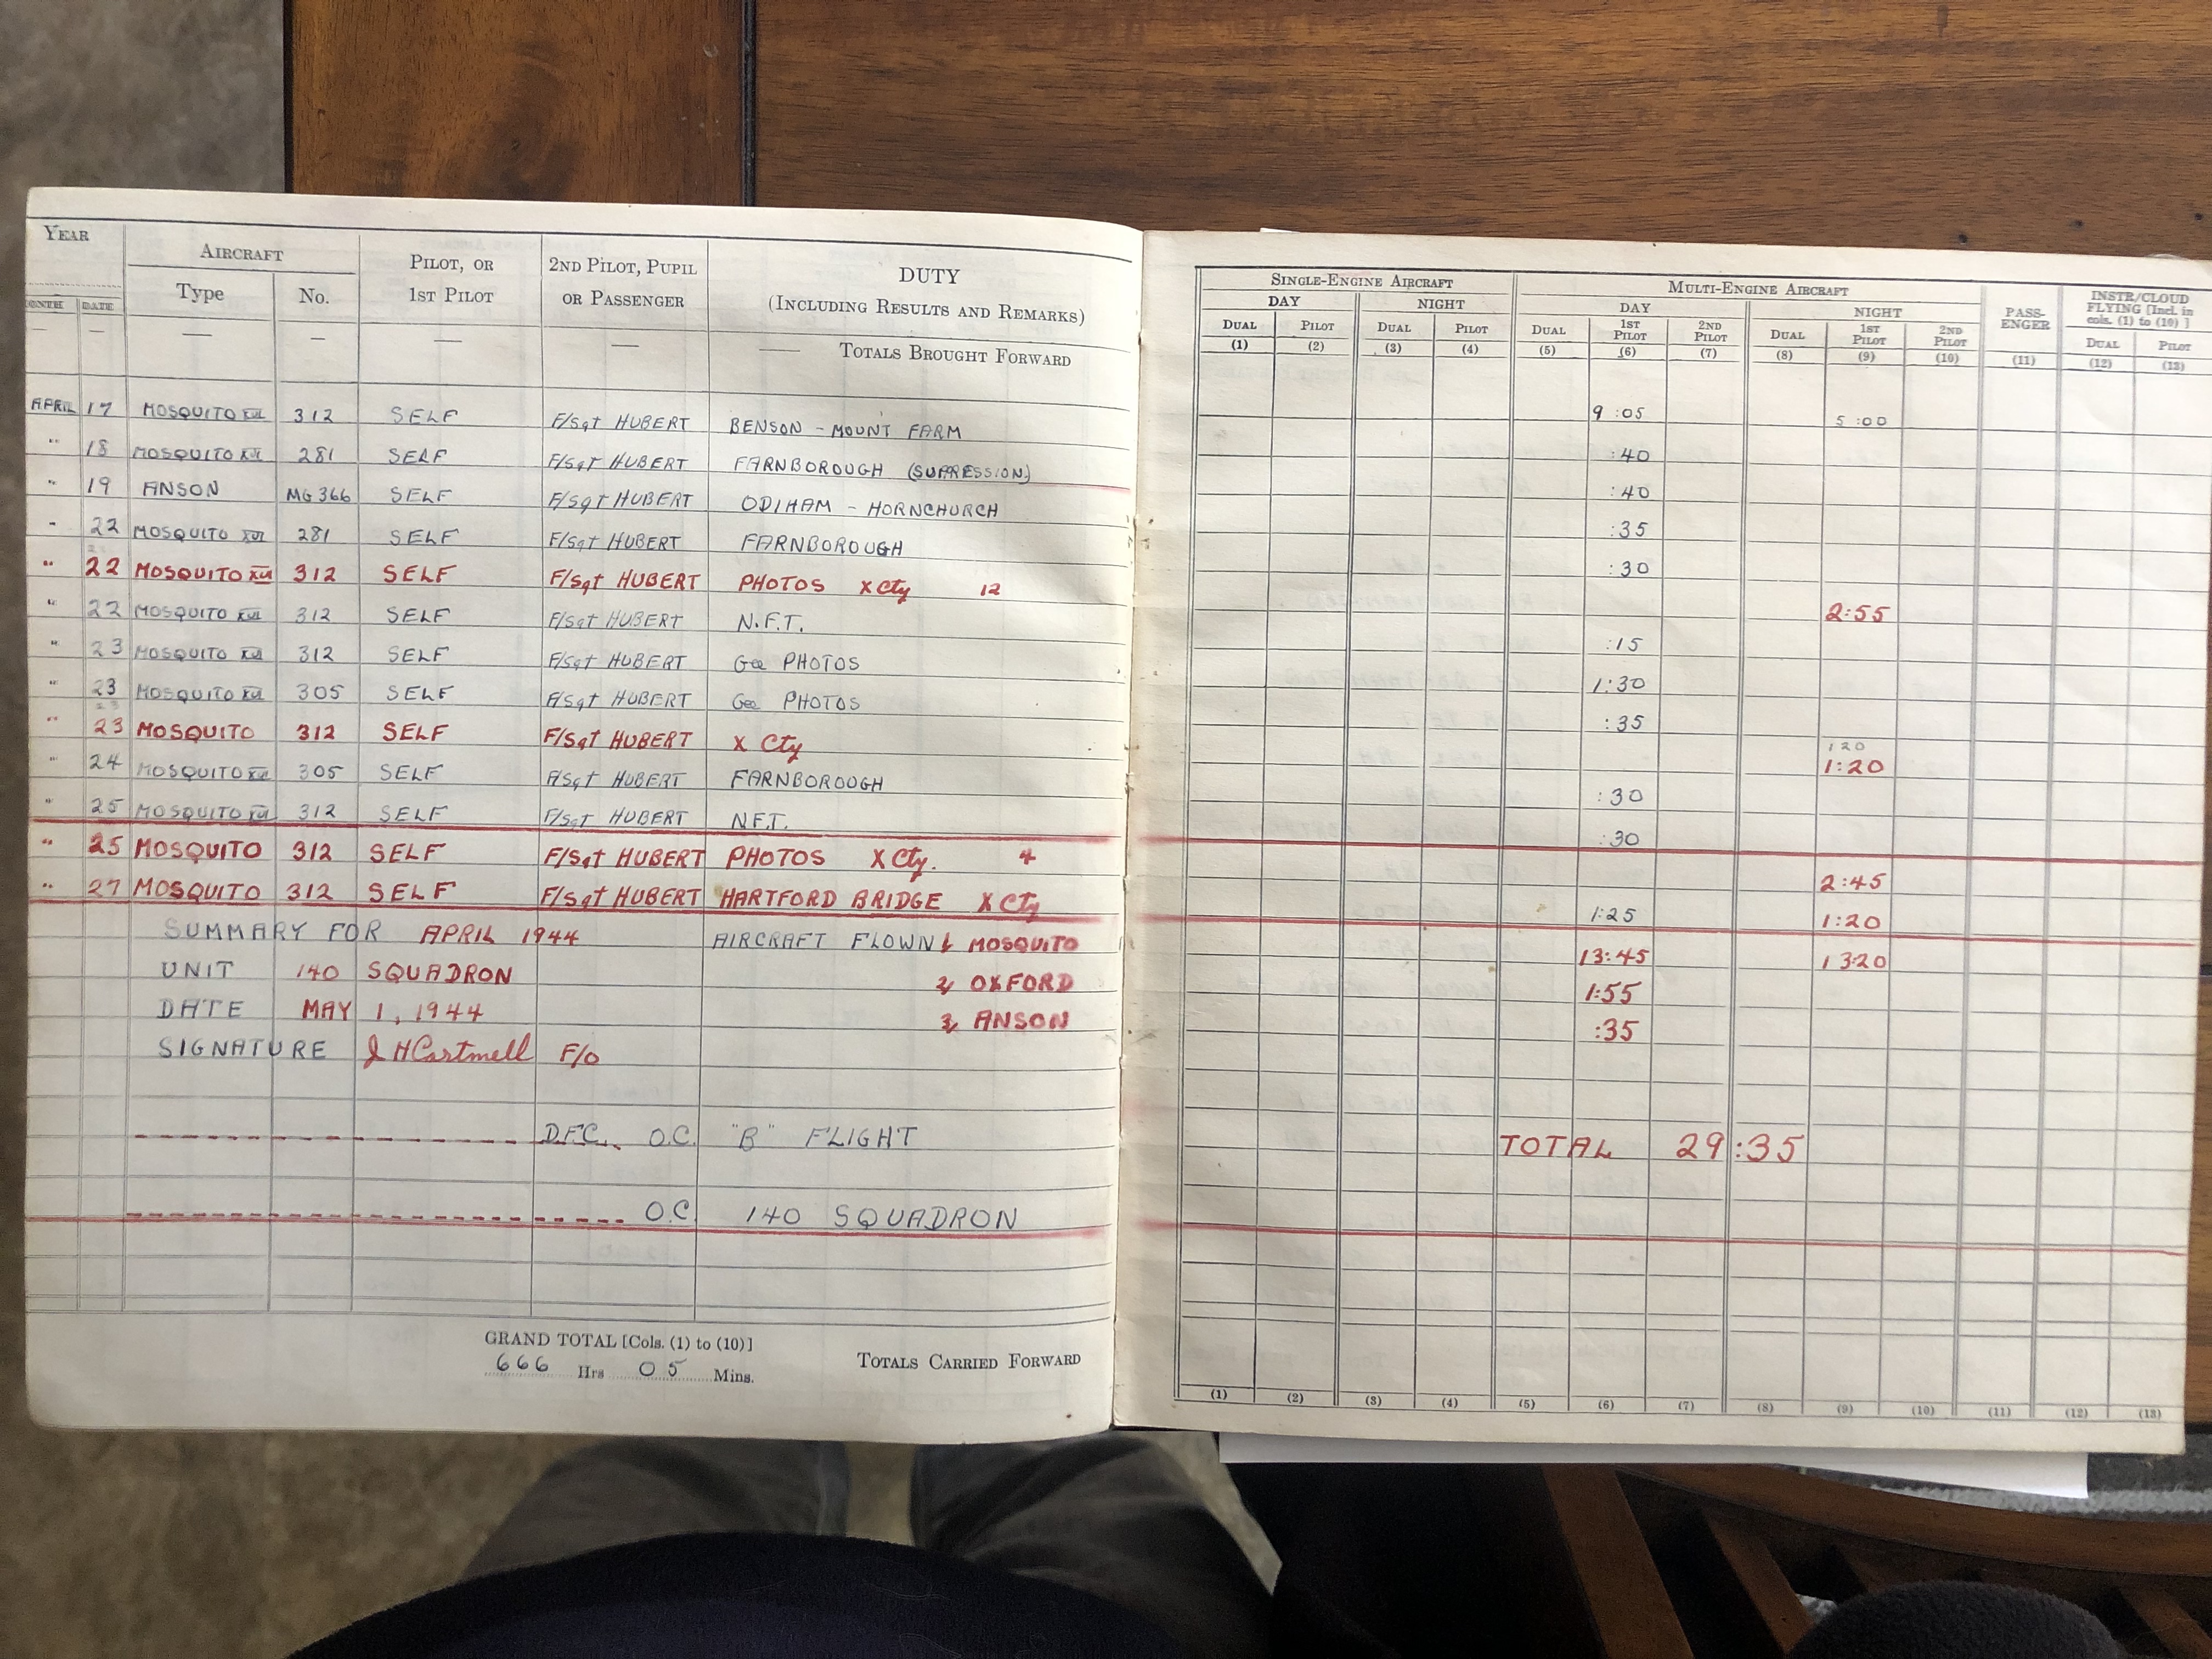 YEAR AIRCRAFT PILOT, OR 1ST PILOT 2ND PILOT, PUPIL OR PASSENGER DUTY (INCLUDING RESULTS AND REMARKS) SINGLE-ENGINE AIRCRAFT MULTI-ENGINE AIRCRAFT PASSENGER INSTR/CLOUD FLYING [Incl. in cols. (1) to (10)]
MONTH DATE Type No. DAY NIGHT DAY NIGHT
DUAL PILOT DUAL PILOT DUAL 1ST PILOT 2ND PILOT DUAL 1ST PILOT 2ND PILOT DUAL PILOT
(1) (2) (3) (4) (5) (6) (7) (8) (9) (10) (11) (12) (13)
— — — — — — — TOTALS BROUGHT FORWARD 9:05 5:00
APRIL 17 MOSQUITO XVI 312 SELF F/Sgt HUBERT BENSON - MOUNT FARM :40
" 18 MOSQUITO XVI 281 SELF F/Sgt HUBERT FARNBOROUGH (SUPRESSION) :40
" 19 ANSON MG366 SELF F/Sgt HUBERT ODIHAM - HORNCHURCH :35
" 22 MOSQUITO XVI 281 SELF F/Sgt HUBERT FARNBOROUGH :30
" 22 MOSQUITO XVI 312 SELF F/Sgt HUBERT PHOTOS X Cty 12 2:55
" 22 MOSQUITO XVI 312 SELF F/Sgt HUBERT N.F.T. :15
" 23 MOSQUITO XVI 312 SELF F/Sgt HUBERT Gee PHOTOS 1:30
" 23 MOSQUITO XVI 305 SELF F/Sgt HUBERT Gee PHOTOS :35
" 23 MOSQUITO 312 SELF F/Sgt HUBERT X Cty 120 1:20
" 24 MOSQUITO XVI 305 SELF F/Sgt HUBERT FARNBOROUGH :30
" 25 MOSQUITO XVI 312 SELF F/Sgt HUBERT N.F.T. :30
" 25 MOSQUITO 312 SELF F/Sgt HUBERT PHOTOS X Cty. 4 2:45
" 27 MOSQUITO 312 SELF F/Sgt HUBERT HARTFORD BRIDGE X Cty 1:25 1:20
SUMMARY FOR APRIL 1944 AIRCRAFT FLOWN 1, MOSQUITO 13:45 1320
UNIT 140 SQUADRON 2, OXFORD 1:55
DATE MAY 1, 1944 3, ANSON :35
SIGNATURE J H Cartmell F/O
D.F.C. O.C. "B" FLIGHT TOTAL 29:35
O.C. 140 SQUADRON
GRAND TOTAL [Cols. (1) to (10)]
666 Hrs 05 Mins. TOTALS CARRIED FORWARD
(1) (2) (3) (4) (5) (6) (7) (8) (9) (10) (11) (12) (13)